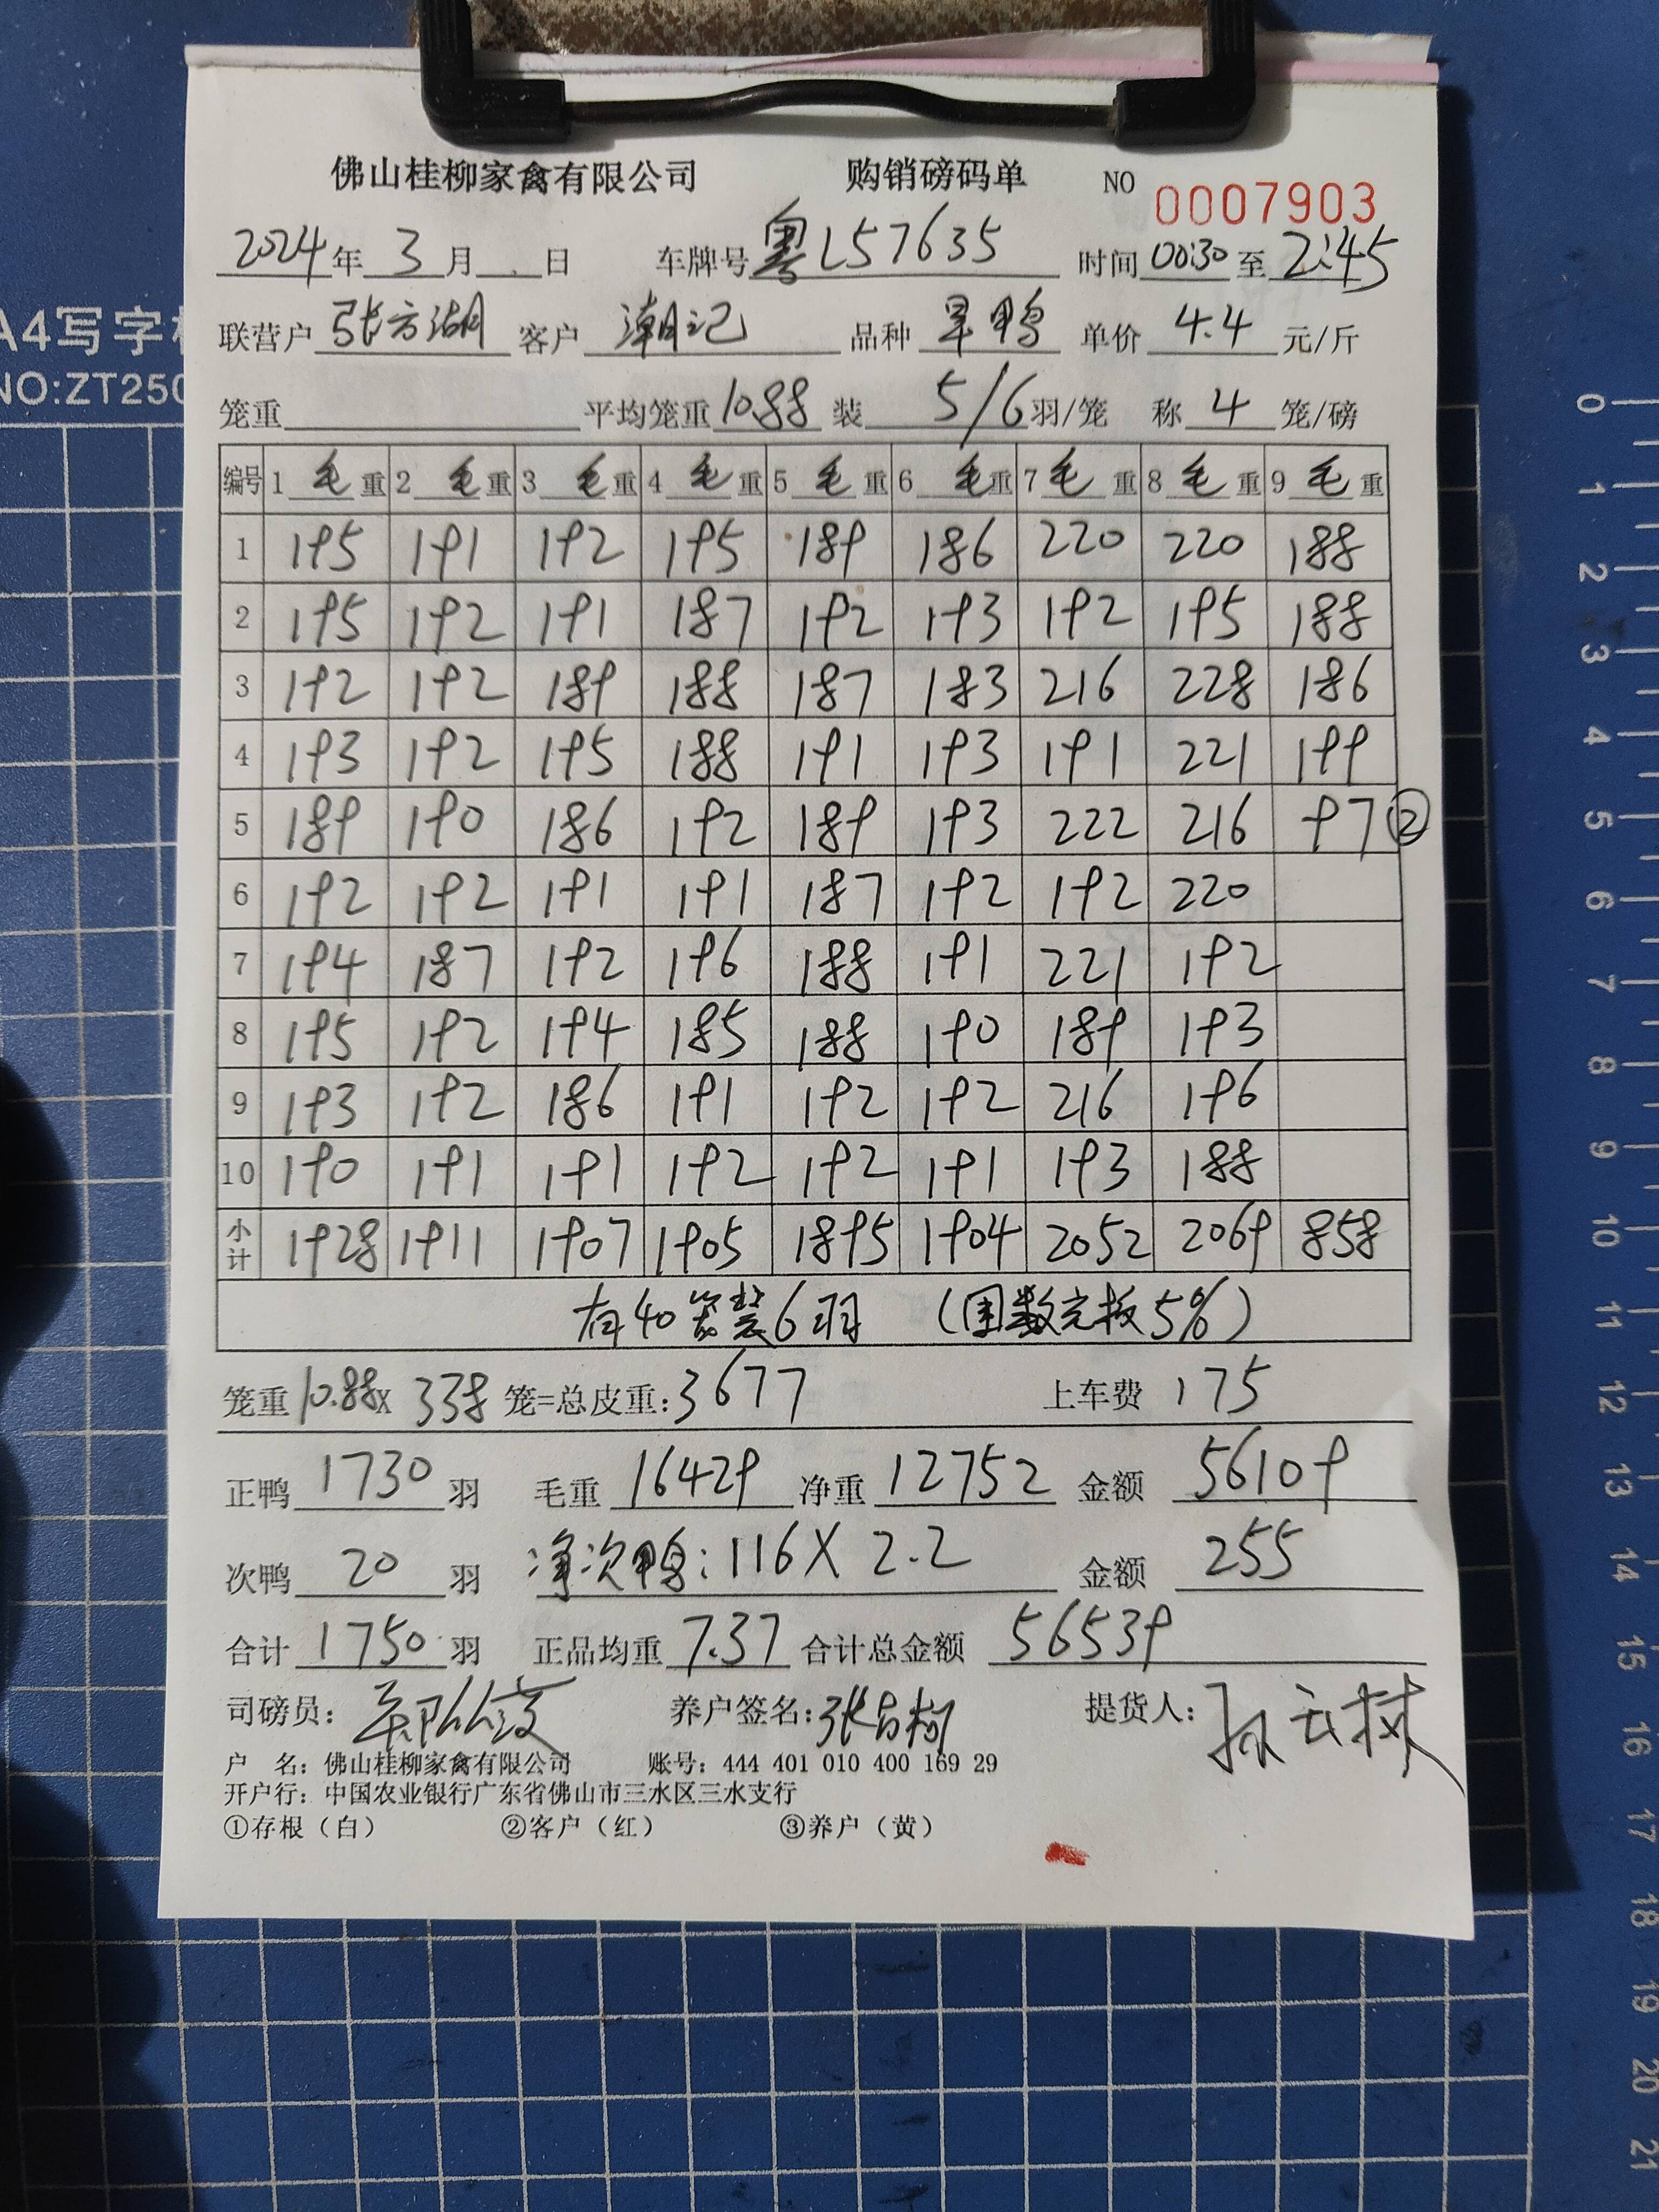 佛山桂柳家禽有限公司 购销磅码单 NO 0007903
2024年3月 日 车牌号粤L57635 时间00:30至2:45
A4写字
联营户 张方湖 客户 潮记 品种 旱鸭 单价 4.4 元/斤
NO:ZT250
笼重 平均笼重10.88 装 5/6羽/笼 称 4 笼/磅
编号 1 毛重 2 毛重 3 毛重 4 毛重 5 毛重 6 毛重 7 毛重 8 毛重 9 毛重
1 195 191 192 195 189 186 220 220 188
2 195 192 191 187 192 193 192 195 188
3 192 192 189 188 187 183 216 228 186
4 193 192 195 188 191 193 191 221 199
5 189 190 186 192 189 193 222 216 97 ②
6 192 192 191 191 187 192 192 220
7 194 187 192 196 188 191 221 192
8 195 192 194 185 188 190 189 193
9 193 192 186 191 192 192 216 196
10 190 191 191 192 192 191 193 188
小计 1928 1911 1907 1905 1895 1904 2052 2069 858
有40笼装6羽 (国数充板5%)
笼重10.88x 338 笼=总皮重:3677 上车费 175
正鸭 1730 羽 毛重 16429 净重 12752 金额 56109
次鸭 20 羽 净次鸭:116X2.2 金额 255
合计 1750 羽 正品均重 7.37 合计总金额 56539
司磅员: 养户签名: 提货人:
户 名:佛山桂柳家禽有限公司 账号:444 401 010 400 169 29
开户行:中国农业银行广东省佛山市三水区三水支行
①存根(白) ②客户(红) ③养户(黄)
0
1
2
3
4
5
6
7
8
9
10
11
12
13
14
15
16
17
18
19
20
21